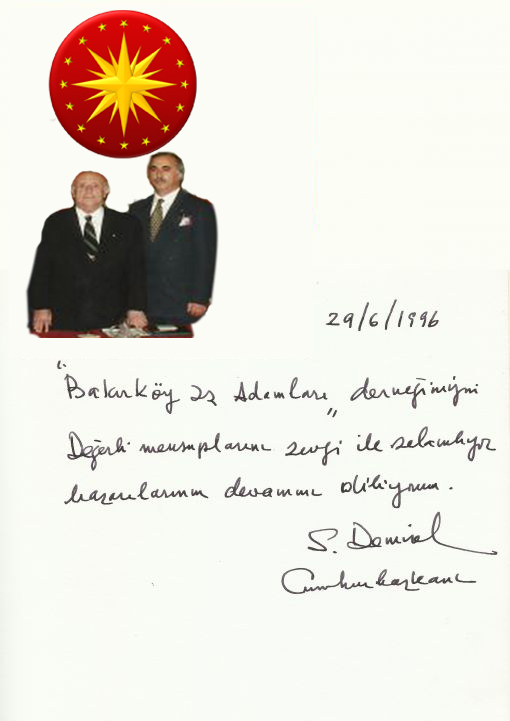 29/6/1996
"Bakırköy İş Adamları" derneğimizin
Değerli mensuplarını sevgi ile selamlıyor
başarılarının devamını diliyorum.
S. Demirel
Cumhurbaşkanı